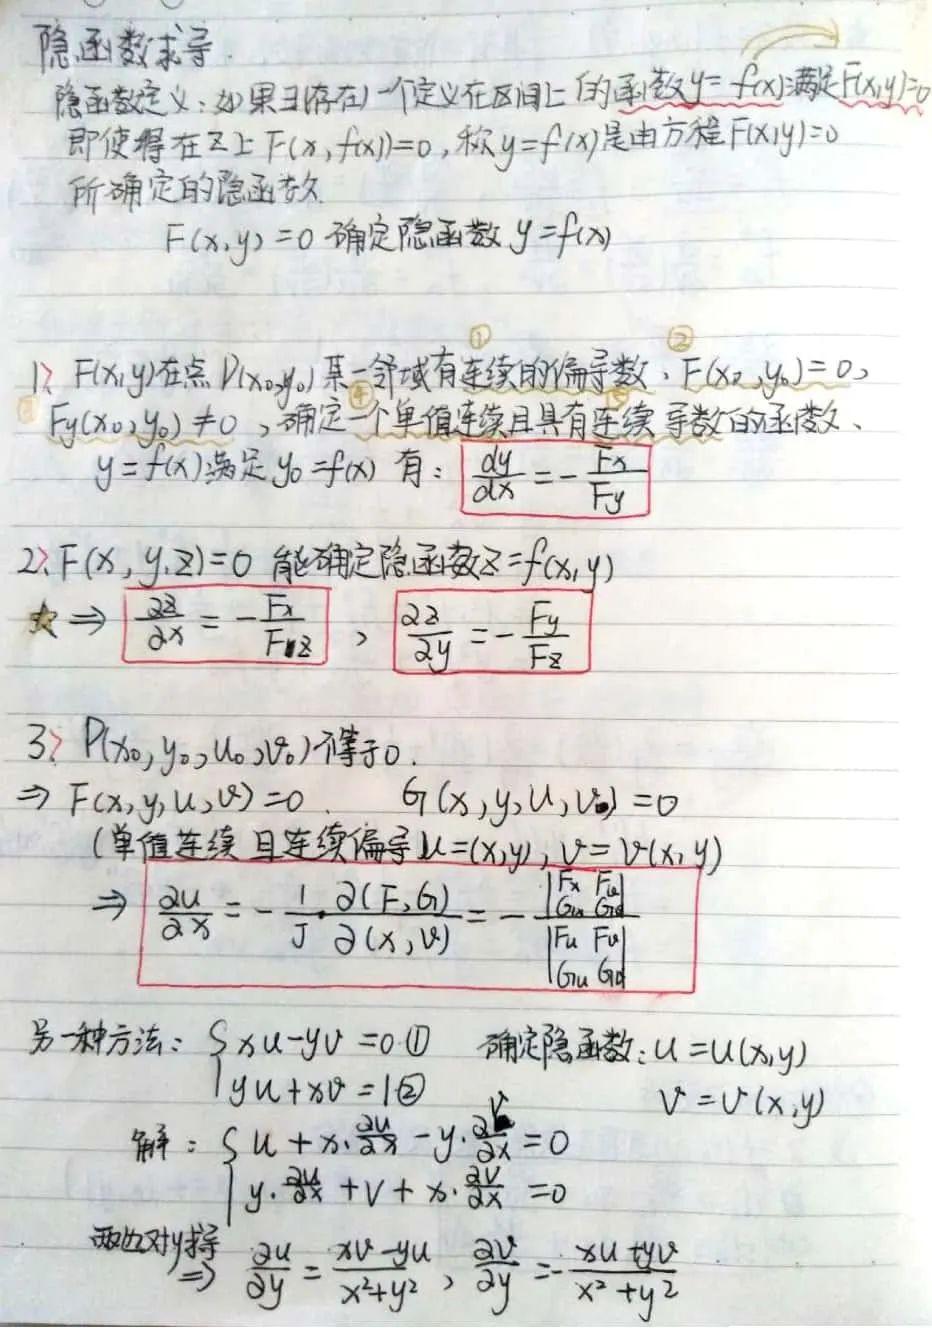 隐函数求导.
隐函数定义：如果∃存在一个定义在区间上的函数y=f(x)满足F(x,y)=0
即使得在Z上F(x,f(x))=0,称y=f(x)是由方程F(x,y)=0
所确定的隐函数.
F(x,y)=0 确定隐函数 y=f(x)
① ②
1> F(x,y)在点P(x₀,y₀)某一邻域有连续的偏导数、F(x₀,y₀)=0,
③ ④ ⑤
Fy(x₀,y₀)≠0,确定一个单值连续且具有连续导数的函数、
y=f(x)满足y₀=f(x) 有： dy/dx = - Fx/Fy
2>、F(x,y,z)=0 能确定隐函数z=f(x,y)
☆ ⇒ ∂z/∂x = - Fx/Fz , ∂z/∂y = - Fy/Fz
3>、P(x₀,y₀,u₀,v₀)不等于0.
⇒ F(x,y,u,v)=0. G(x,y,u,v)=0
(单值连续且连续偏导u=(x,y), v=v(x,y)
⇒ ∂u/∂x = - 1/J · ∂(F,G)/∂(x,v) = - |Fx Fv Gx Gv| / |Fu Fv Gu Gv|
另一种方法： { xu-yv=0 ① 确定隐函数：u=u(x,y)
yu+xv=1 ② v=v(x,y)
解： { u+x·∂u/∂x - y·∂v/∂x = 0
y·∂u/∂x + v + x·∂v/∂x = 0
两边对y求导
⇒ ∂u/∂y = (xv-yu)/(x²+y²) , ∂v/∂y = - (xu+yv)/(x²+y²)